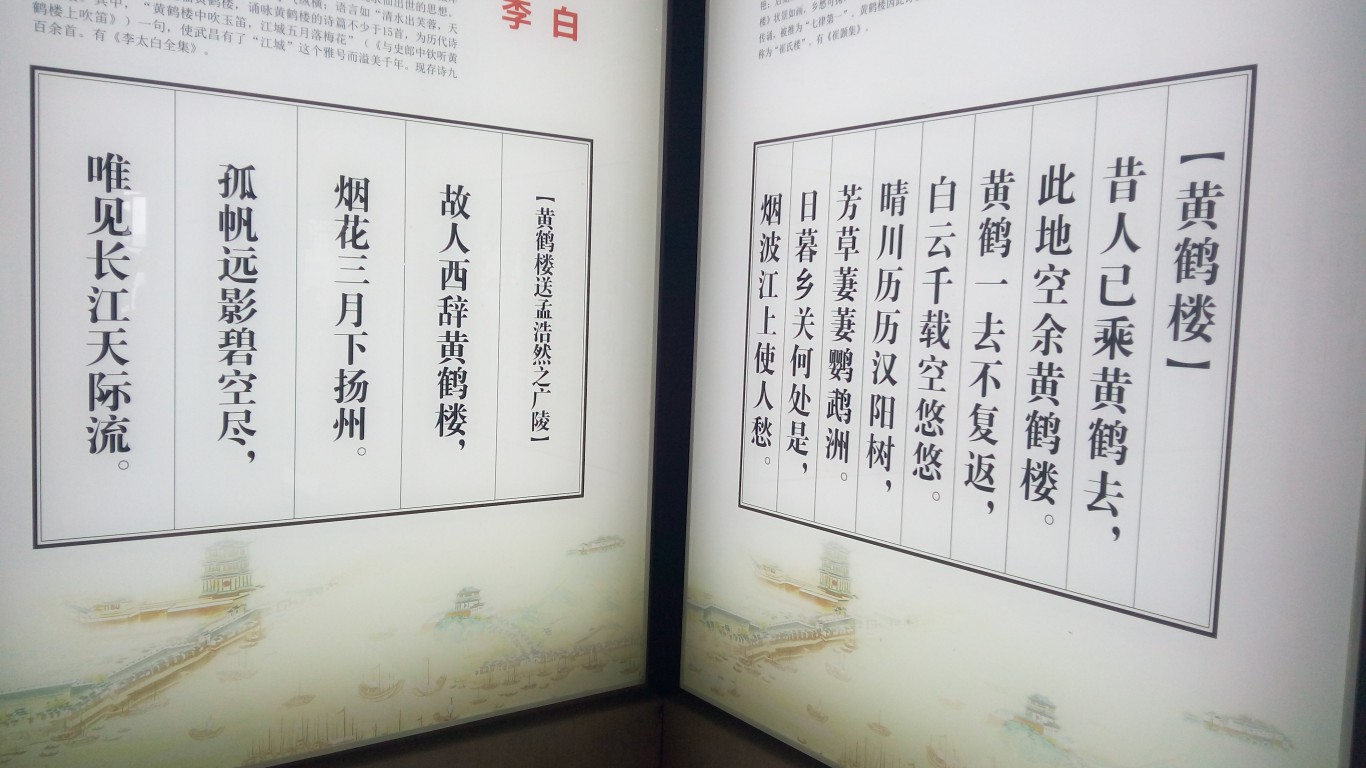 出世的思想。
纵横；语言如“清水出芙蓉，天
黄鹤楼，诵咏黄鹤楼的诗篇不少于15首，为历代诗
其中，“黄鹤楼中吹玉笛，江城五月落梅花”（《与史郎中钦听黄
鹤楼上吹笛》）一句，使武昌有了“江城”这个雅号而溢美千年。现存诗九
百余首。有《李太白全集》。
李白
【黄鹤楼送孟浩然之广陵】
故人西辞黄鹤楼，
烟花三月下扬州。
孤帆远影碧空尽，
唯见长江天际流。
楼》状景如画，乡愁可掬
传诵，被推为“七律第一”。黄鹤楼因此
称为“崔氏楼”。有《崔颢集》。
【黄鹤楼】
昔人已乘黄鹤去，
此地空余黄鹤楼。
黄鹤一去不复返，
白云千载空悠悠。
晴川历历汉阳树，
芳草萋萋鹦鹉洲。
日暮乡关何处是，
烟波江上使人愁。